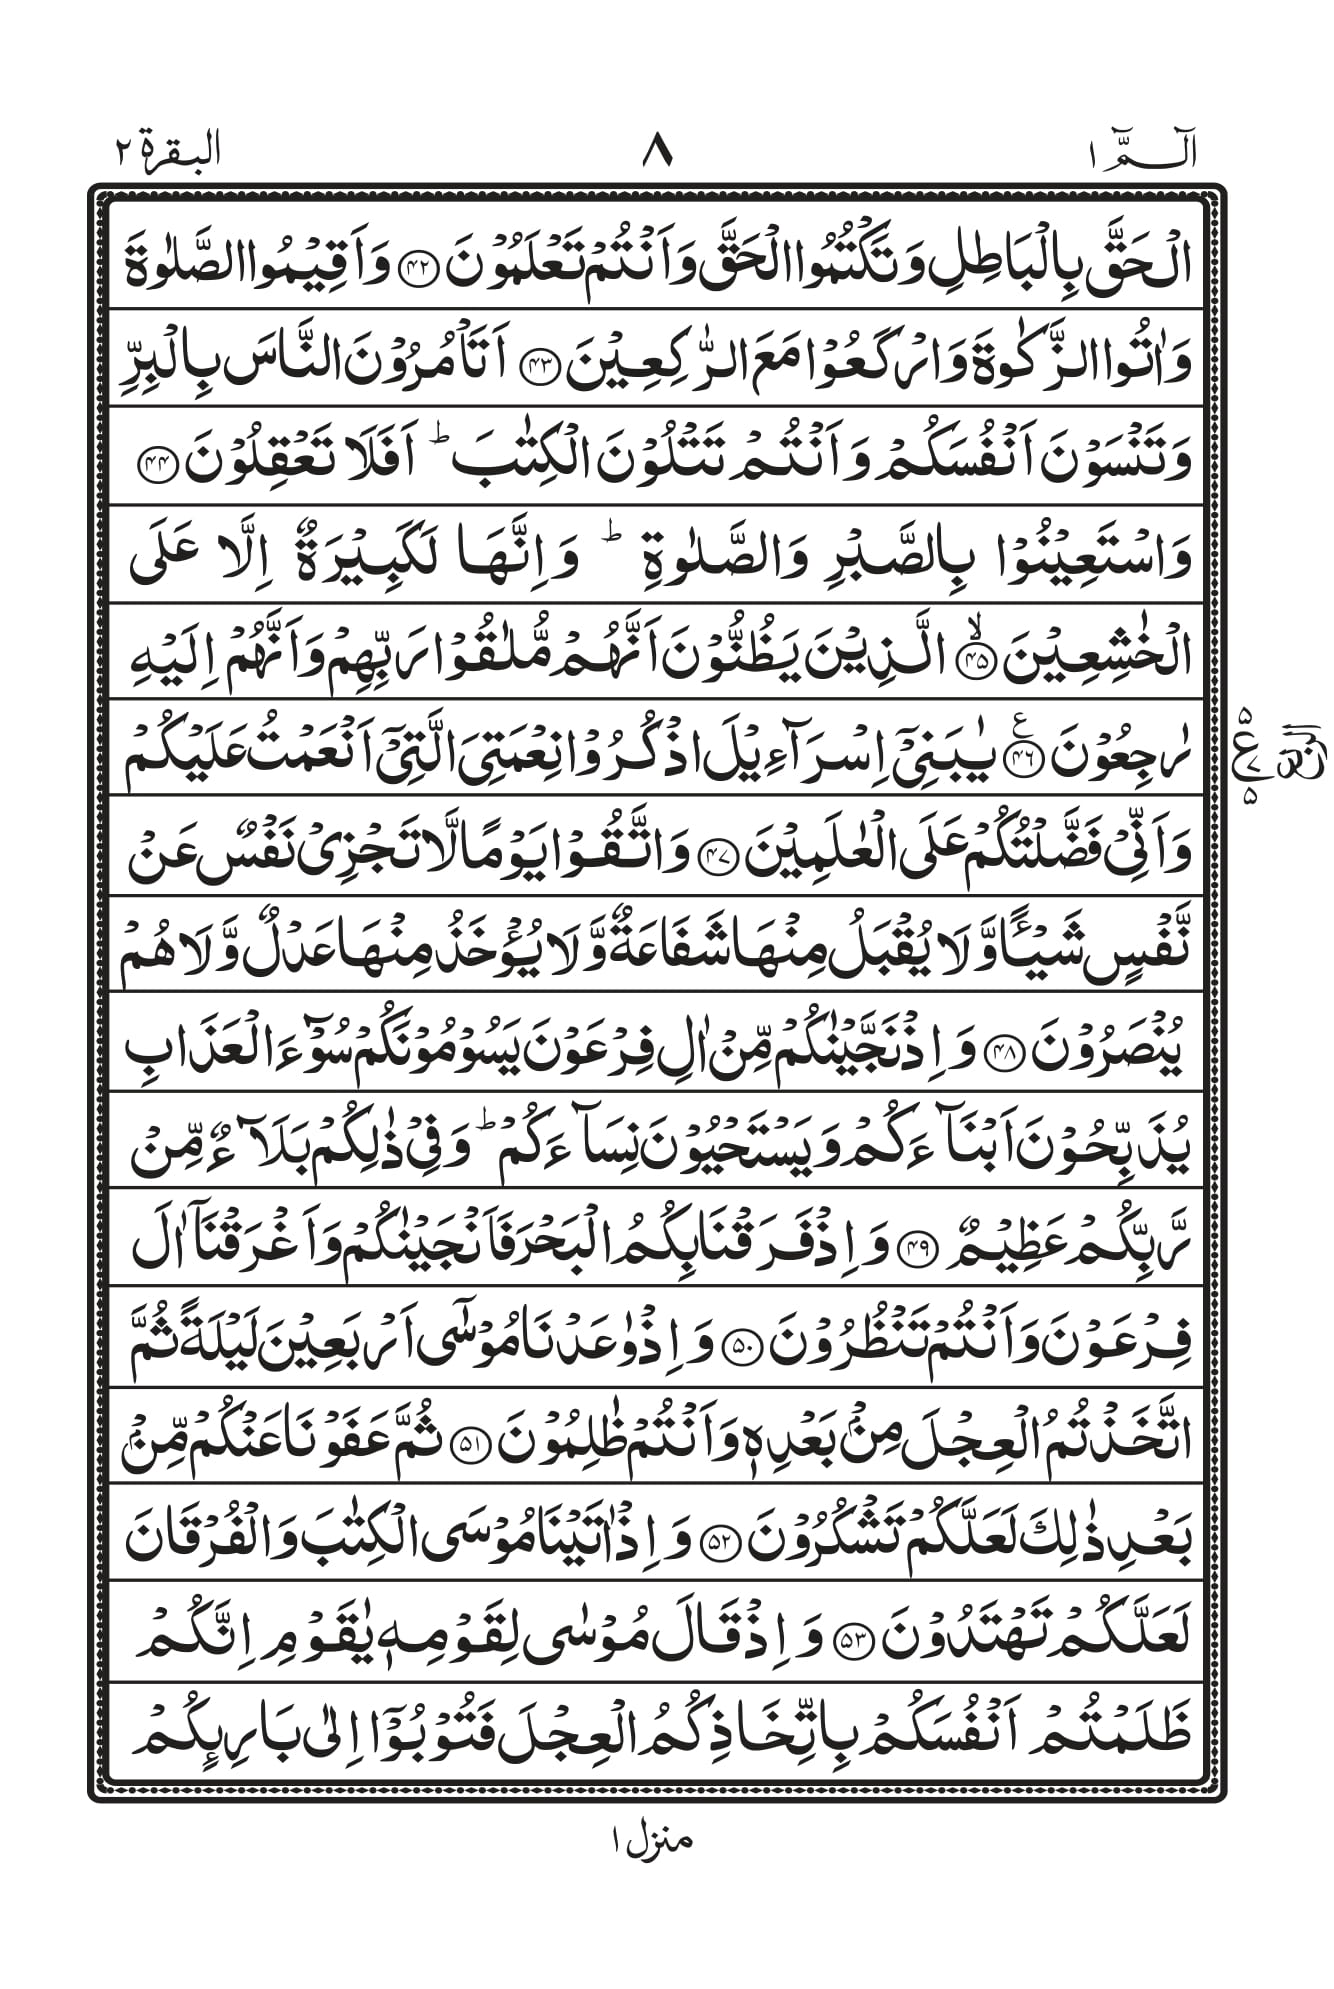 الٓمّٓ ١
٨
البقرة ٢
الْحَقَّ بِالْبَاطِلِ وَتَكْتُمُوا الْحَقَّ وَاَنْتُمْ تَعْلَمُوْنَ ﴿۴۲﴾ وَاَقِيْمُوا الصَّلٰوةَ
وَاٰتُوا الزَّكٰوةَ وَارْكَعُوْا مَعَ الرّٰكِعِيْنَ ﴿۴۳﴾ اَتَاْمُرُوْنَ النَّاسَ بِالْبِرِّ
وَتَنْسَوْنَ اَنْفُسَكُمْ وَاَنْتُمْ تَتْلُوْنَ الْكِتٰبَ ؕ اَفَلَا تَعْقِلُوْنَ ﴿۴۴﴾
وَاسْتَعِيْنُوْا بِالصَّبْرِ وَالصَّلٰوةِ ؕ وَاِنَّهَا لَكَبِيْرَةٌ اِلَّا عَلَى
الْخٰشِعِيْنَ ۙ﴿۴۵﴾ الَّذِيْنَ يَظُنُّوْنَ اَنَّهُمْ مُّلٰقُوْا رَبِّهِمْ وَاَنَّهُمْ اِلَيْهِ
رٰجِعُوْنَ ﴿۴۶﴾ ع يٰبَنِيْٓ اِسْرَآءِيْلَ اذْكُرُوْا نِعْمَتِيَ الَّتِيْٓ اَنْعَمْتُ عَلَيْكُمْ
۵ ع ۷ ۵
وَاَنِّيْ فَضَّلْتُكُمْ عَلَى الْعٰلَمِيْنَ ﴿۴۷﴾ وَاتَّقُوْا يَوْمًا لَّا تَجْزِيْ نَفْسٌ عَنْ
نَّفْسٍ شَيْـًٔا وَّلَا يُقْبَلُ مِنْهَا شَفَاعَةٌ وَّلَا يُؤْخَذُ مِنْهَا عَدْلٌ وَّلَا هُمْ
يُنْصَرُوْنَ ﴿۴۸﴾ وَاِذْ نَجَّيْنٰكُمْ مِّنْ اٰلِ فِرْعَوْنَ يَسُوْمُوْنَكُمْ سُوْٓءَ الْعَذَابِ
يُذَبِّحُوْنَ اَبْنَآءَكُمْ وَيَسْتَحْيُوْنَ نِسَآءَكُمْ ؕ وَفِيْ ذٰلِكُمْ بَلَآءٌ مِّنْ
رَّبِّكُمْ عَظِيْمٌ ﴿۴۹﴾ وَاِذْ فَرَقْنَا بِكُمُ الْبَحْرَ فَاَنْجَيْنٰكُمْ وَاَغْرَقْنَآ اٰلَ
فِرْعَوْنَ وَاَنْتُمْ تَنْظُرُوْنَ ﴿۵۰﴾ وَاِذْ وٰعَدْنَا مُوْسٰٓى اَرْبَعِيْنَ لَيْلَةً ثُمَّ
اتَّخَذْتُمُ الْعِجْلَ مِنْۢ بَعْدِهٖ وَاَنْتُمْ ظٰلِمُوْنَ ﴿۵۱﴾ ثُمَّ عَفَوْنَا عَنْكُمْ مِّنْۢ
بَعْدِ ذٰلِكَ لَعَلَّكُمْ تَشْكُرُوْنَ ﴿۵۲﴾ وَاِذْ اٰتَيْنَا مُوْسَى الْكِتٰبَ وَالْفُرْقَانَ
لَعَلَّكُمْ تَهْتَدُوْنَ ﴿۵۳﴾ وَاِذْ قَالَ مُوْسٰى لِقَوْمِهٖ يٰقَوْمِ اِنَّكُمْ
ظَلَمْتُمْ اَنْفُسَكُمْ بِاتِّخَاذِكُمُ الْعِجْلَ فَتُوْبُوْٓا اِلٰى بَارِىِٕكُمْ
منزل ١